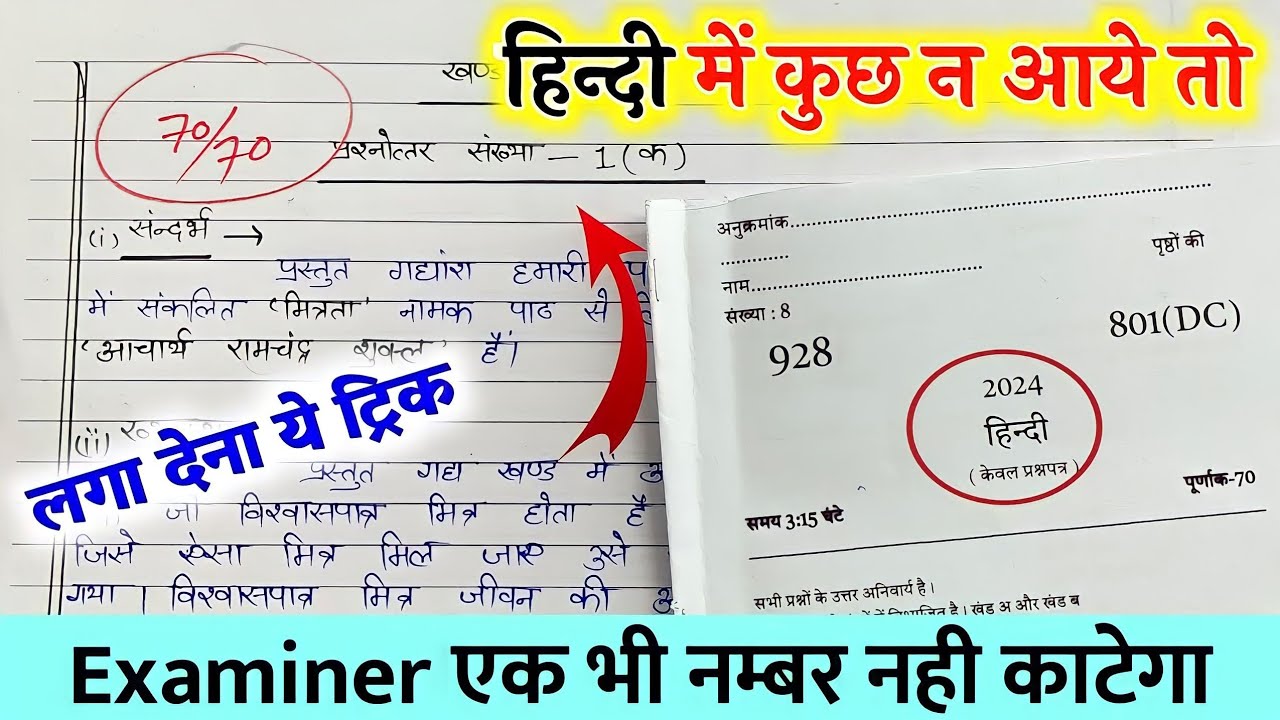 हिन्दी में कुछ न आये तो
खण्ड
70/70
प्रश्नोत्तर संख्या - 1 (क)
(i) संन्दर्भ →
प्रस्तुत गद्यांश हमारी
में संकलित 'मित्रता' नामक पाठ से
'आचार्य रामचंद्र शुक्ल' हैं।
लगा देना ये ट्रिक
(ii)
प्रस्तुत गद्य खण्ड में
जो विश्वासपात्र मित्र होता है
जिसे ऐसा मित्र मिल जाए उसे
गया। विश्वासपात्र मित्र जीवन की
अनुक्रमांक........................................................
............
पृष्ठों की
नाम........................................
संख्या : 8
928
801(DC)
2024
हिन्दी
( केवल प्रश्नपत्र )
पूर्णाक-70
समय 3:15 घंटे
सभी प्रश्नों के उत्तर अनिवार्य है।
विभाजित है। खंड अ और खंड ब
Examiner एक भी नम्बर नही काटेगा